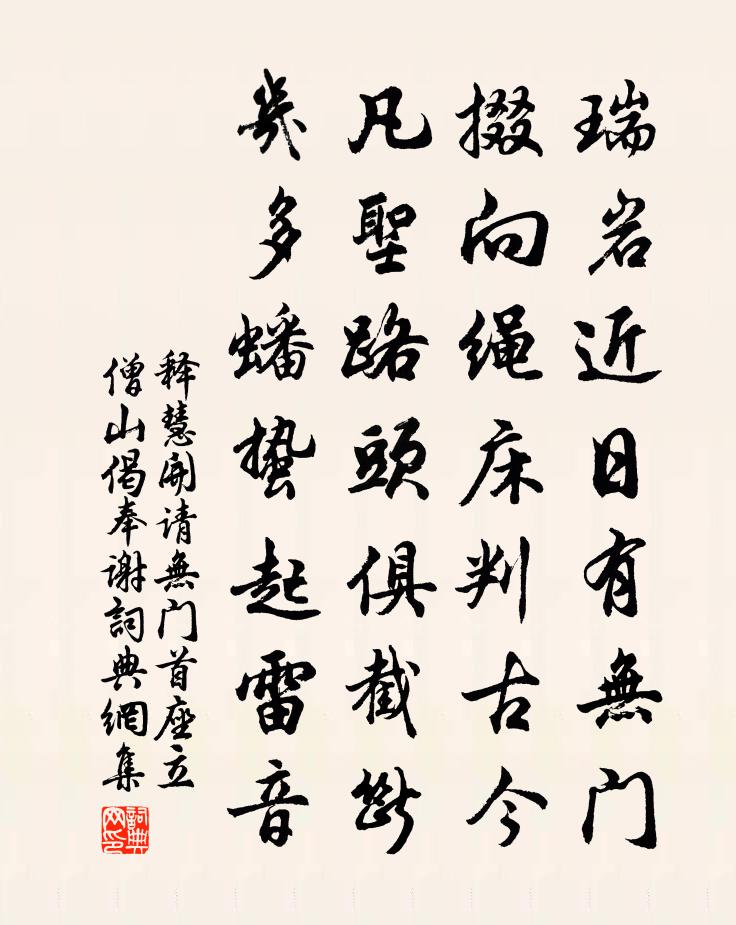 瑞岩近日有無门
掇向绳床判古今
凡聖路頭俱截斷
幾多蟠蛰起雷音
释慧開请無门首座立
僧山偈奉谢詞典網集
詞典
网印